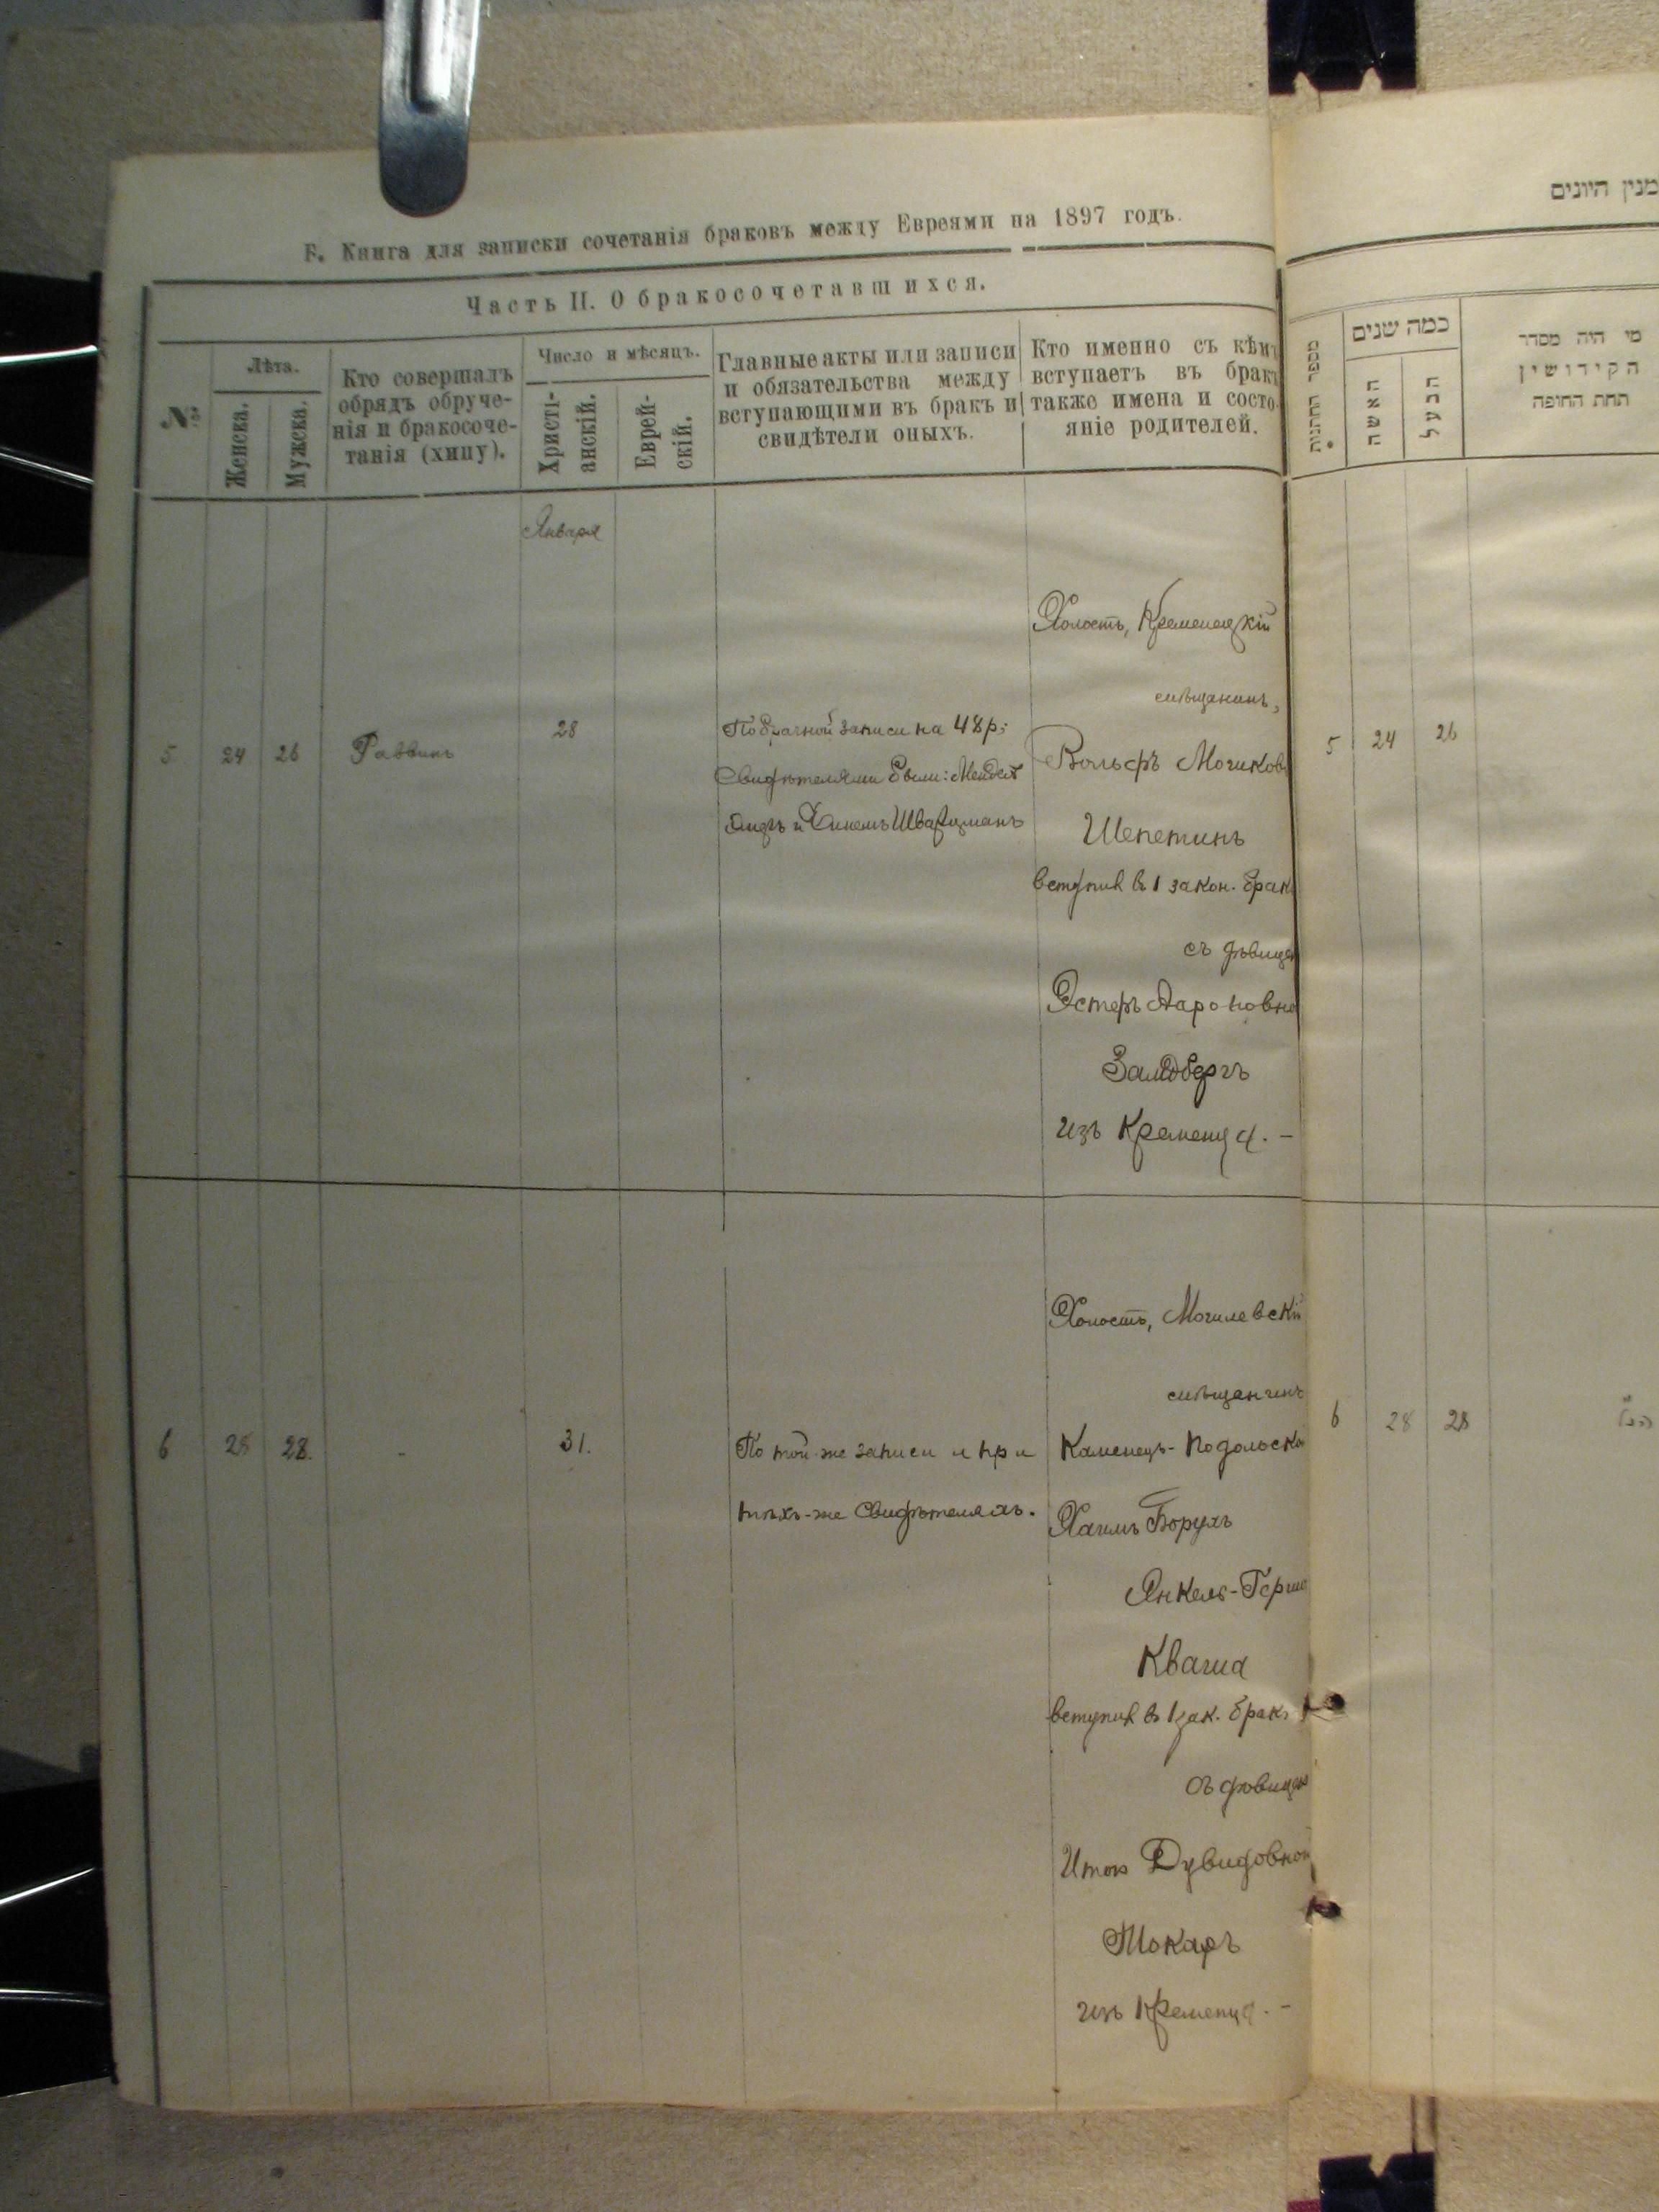 Б. Книга для записки сочетанія браковъ между Евреями на 1897 годъ.
Часть II. О бракосочетавшихся.
№
Лѣта.
Женска.
Мужска.
Кто совершалъ
обрядъ обруче-
нія и бракосоче-
танія (хипу).
Число и мѣсяцъ.
Христі-
анскій.
Еврей-
скій.
Главные акты или записи
и обязательства между
вступающими въ бракъ и
свидѣтели оныхъ.
Кто именно съ кѣмъ
вступаетъ въ бракъ
также имена и состо-
яніе родителей.
Января
5 24 26 Раввинъ 28
По брачной записи на 48 р;
Свидѣтелями были: Мендель
и Хинемъ Шварцманъ
Холостъ, Кременецкій
мѣщанинъ,
Вольфъ Мошковъ
Шепетинъ
вступил в 1 закон. брак
съ дѣвицей
Эстеръ Аароновна
Замдбергъ
изъ Кременца. –
6 28 28. - 31.
По той-же записи и при
тѣхъ-же Свидѣтеляхъ.
Холостъ, Могилевскій
мѣщанинъ
Каменецъ-Подольской
Хаимъ Борухъ
Янкель-Герш
Кваша
вступил в 1 зак. бракъ
съ дѣвицей
Итою Дувидовной
Токаръ
изъ Кременца. –
מנין היונים
מספר החתנות
כמה שנים
האשה
הבעל
מי היה מסדר
הקידושין
תחת החופה
5 24 26
6 28 28 הנ"ל